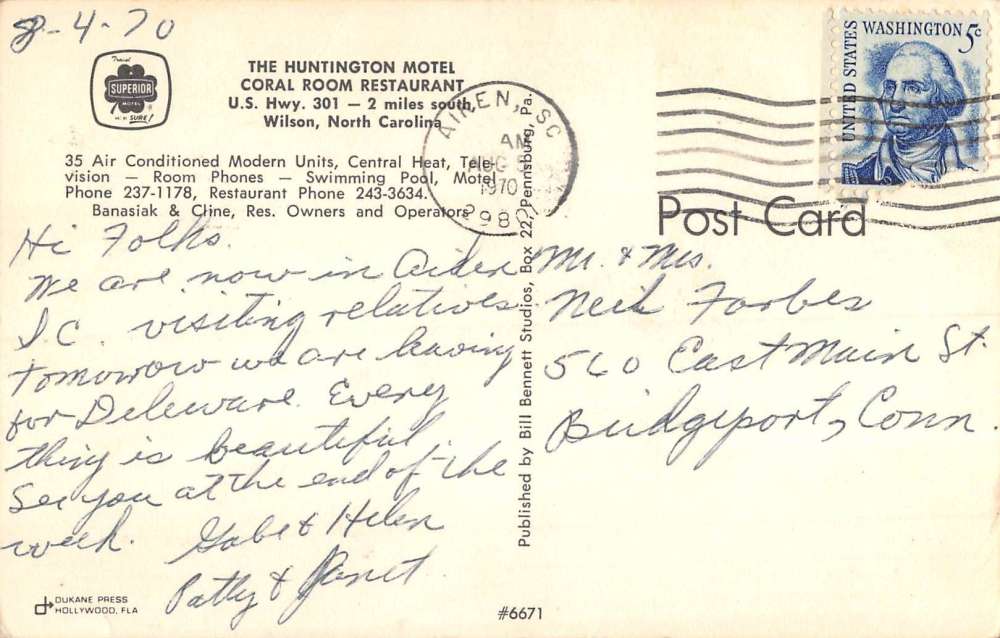 8-4-70
Travel
SUPERIOR
MOTEL
SURE!
THE HUNTINGTON MOTEL
CORAL ROOM RESTAURANT
U.S. Hwy. 301 — 2 miles south
Wilson, North Carolina
35 Air Conditioned Modern Units, Central Heat, Tele-
vision — Room Phones — Swimming Pool, Motel
Phone 237-1178, Restaurant Phone 243-3634.
Banasiak & Cline, Res. Owners and Operators
AIKEN, SC
AM
AUG 5
1970
2980
UNITED STATES
WASHINGTON 5c
Post Card
Hi Folks.
We are now in Aiken
S.C. visiting relatives
tomorrow we are leaving
for Deleware. Every
thing is beautiful.
See you at the end of the
week. Gabe & Helen
Patty & Janet
Published by Bill Bennett Studios, Box 22, Pennsburg, Pa.
Mr. & Mrs.
Neil Forbes
560 East Main St.
Bridgeport, Conn.
DUKANE PRESS
HOLLYWOOD, FLA
#6671